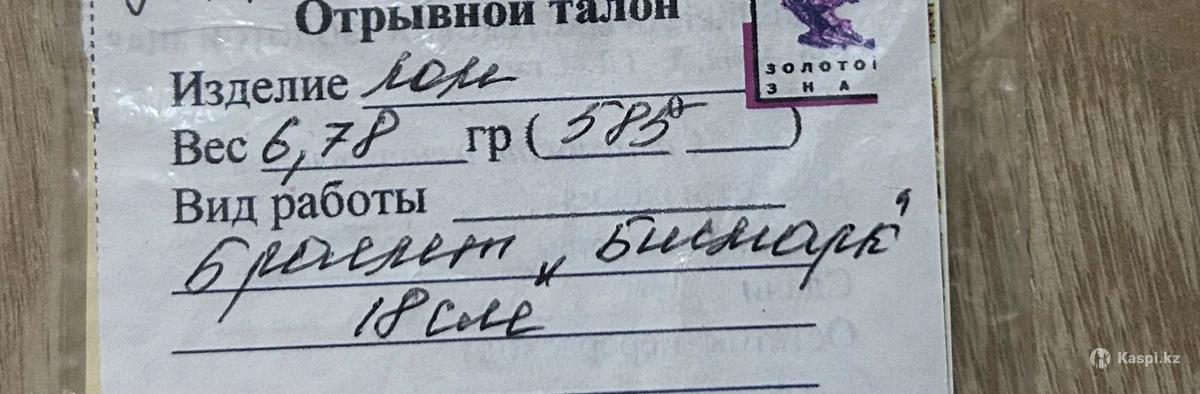 Отрывной талон
ЗОЛОТО
ЗНА
Изделие лом
Вес 6,78 гр (585°)
Вид работы
Браслет "Бисмарк"
18 см
Kaspi.kz